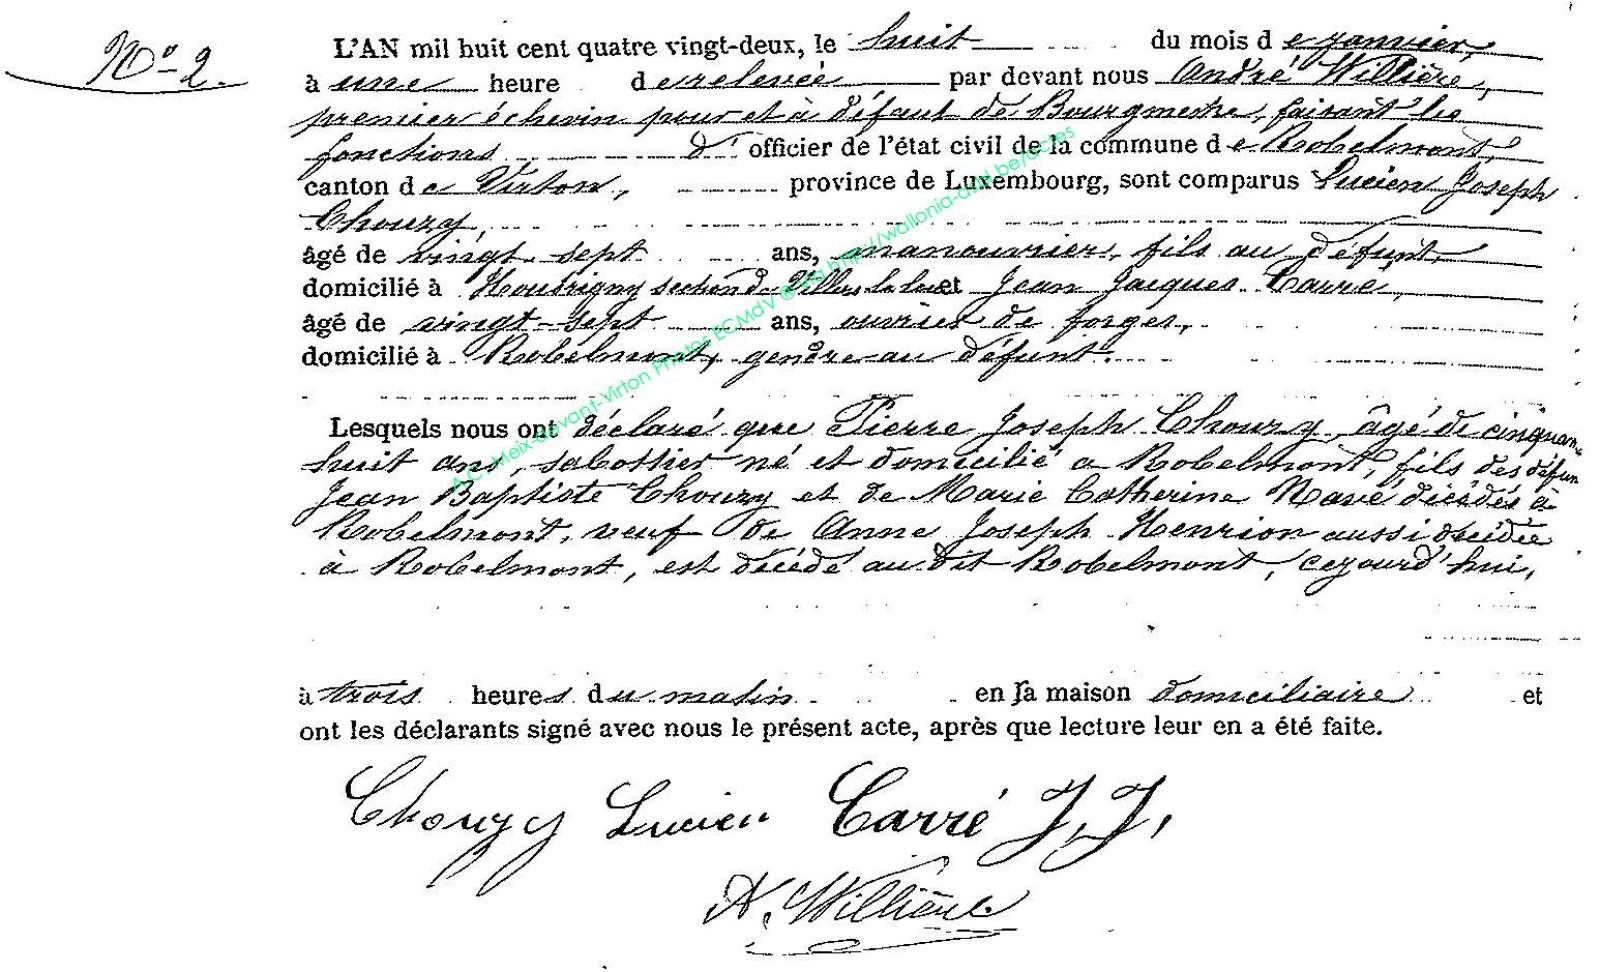 No 2.
L'AN mil huit cent quatre vingt-deux, le huit du mois de janvier,
à une heure de relevée par devant nous André Willière,
premier échevin pour et à défaut de Bourgmestre, faisant les
fonctions d'officier de l'état civil de la commune de Robelmont,
canton de Virton, province de Luxembourg, sont comparus Lucien Joseph
Chouzy,
âgé de vingt sept ans, manouvrier, fils au défunt,
domicilié à Houdrigny section de Villers la loue et Jean Jacques Carré,
âgé de vingt-sept ans, ouvrier de forges,
domicilié à Robelmont, gendre au défunt.
Lesquels nous ont déclaré que Pierre Joseph Chouzy, âgé de cinquan-
huit ans, sabottier né et domicilié a Robelmont, fils des défun
Jean Baptiste Chouzy et de Marie Catherine Navé décédés à
Robelmont, veuf de Anne Joseph Henrion aussi décédée
à Robelmont, est décédé au dit Robelmont, cejourd'hui,
à trois heures du matin en sa maison domiciliaire et
ont les déclarants signé avec nous le présent acte, après que lecture leur en a été faite.
Chouzy Lucien Carré J. J.
A. Willière
A.C. Meix-devant-Virton Photos ECMdV © via http://wallonia-asbl.be/actes